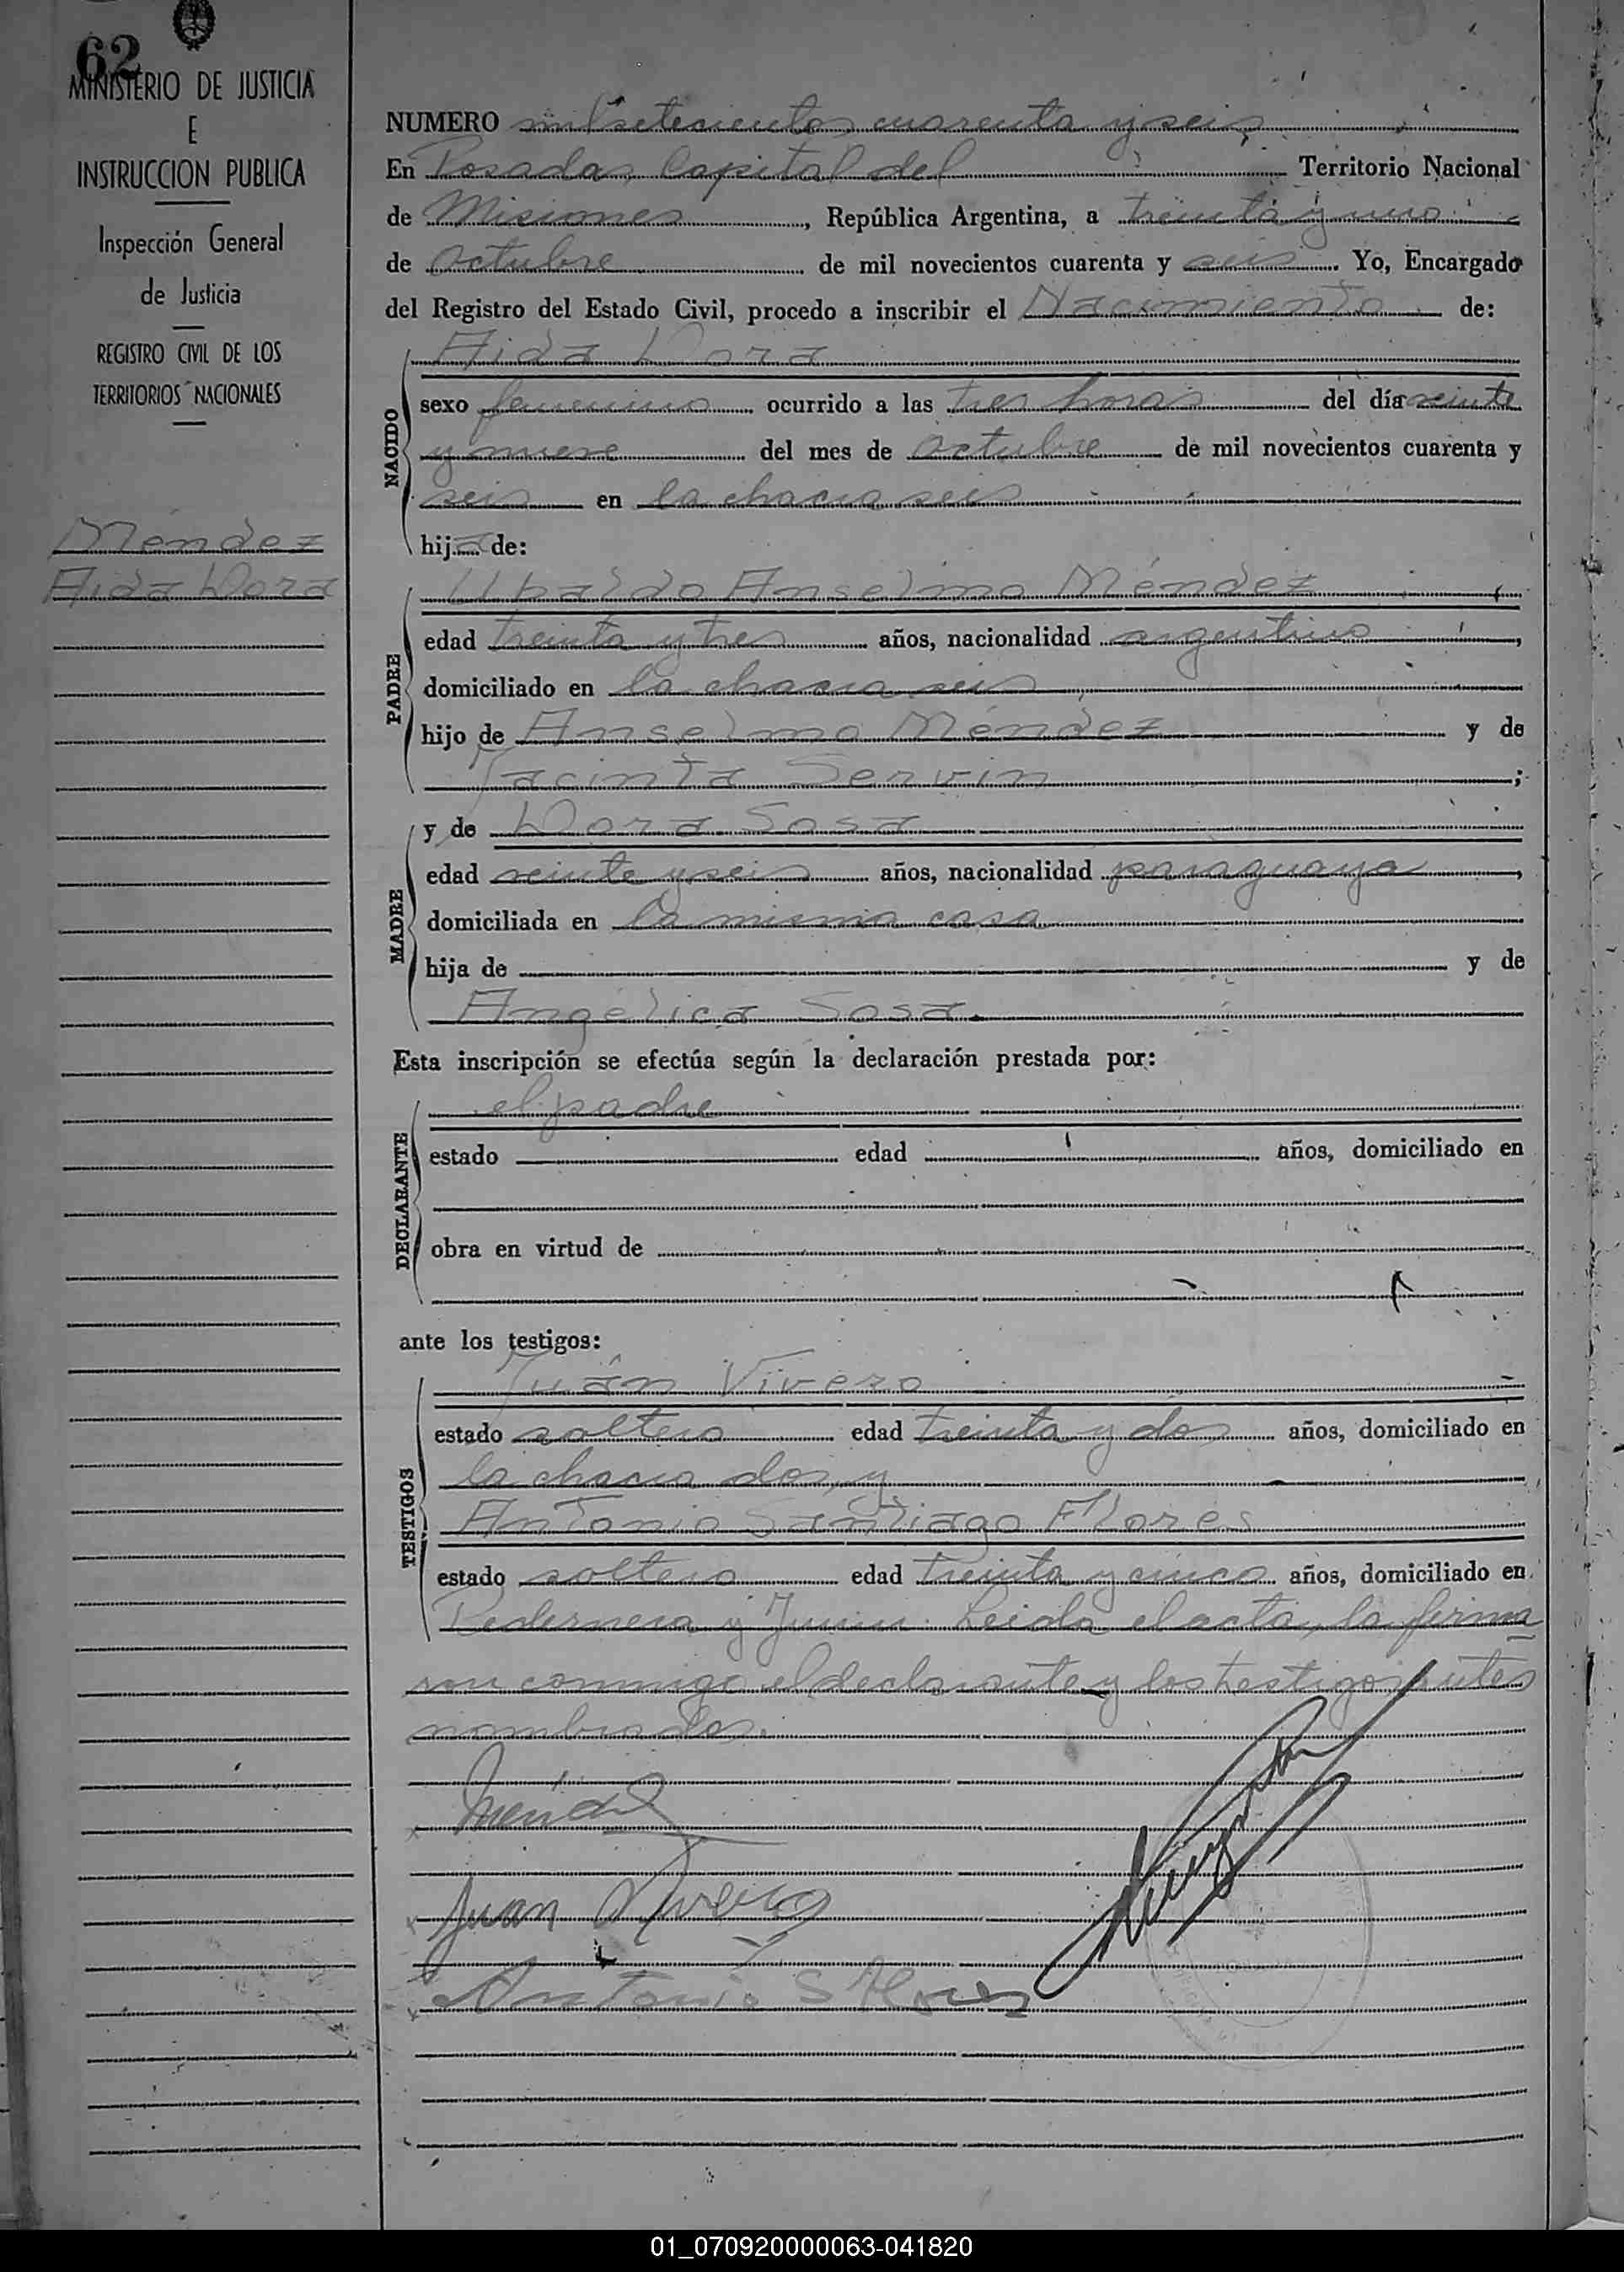 62
MINISTERIO DE JUSTICIA
E
INSTRUCCION PUBLICA
Inspección General
de Justicia
REGISTRO CIVIL DE LOS
TERRITORIOS NACIONALES
Méndez
Aida Dora
NUMERO mil setecientos cuarenta y seis
En Posadas, Capital del Territorio Nacional
de Misiones, República Argentina, a treinta y uno
de Octubre de mil novecientos cuarenta y seis. Yo, Encargado
del Registro del Estado Civil, procedo a inscribir el Nacimiento de:
Aida Dora
NACIDO
sexo femenino ocurrido a las tres horas del día veinte
y nueve del mes de Octubre de mil novecientos cuarenta y
seis en la chacra seis
hija de:
Ubaldo Anselmo Méndez,
PADRE
edad treinta y tres años, nacionalidad argentino,
domiciliado en la chacra seis
hijo de Anselmo Méndez y de
Jacinta Servin;
y de Dora Sosa
MADRE
edad veinte y seis años, nacionalidad paraguaya,
domiciliada en la misma casa
hija de y de
Angélica Sosa.
Esta inscripción se efectúa según la declaración prestada por:
el padre
DECLARANTE
estado edad años, domiciliado en
obra en virtud de
ante los testigos:
Juán Vivero
TESTIGOS
estado soltero edad treinta y dos años, domiciliado en
la chacra dos, y
Antonio Santiago Flores
estado soltero edad treinta y cinco años, domiciliado en
Pedernera y Junin. Leida el acta, la firma
ron conmigo el declarante y los testigos antes
nombrados.
Méndez
Juan Vivero
Antonio S Flores
01_070920000063-041820